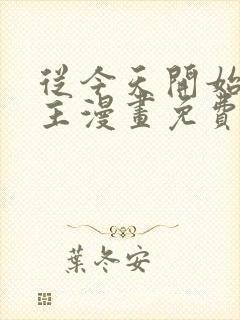 從今天開始
主漫畫免費
葉冬安